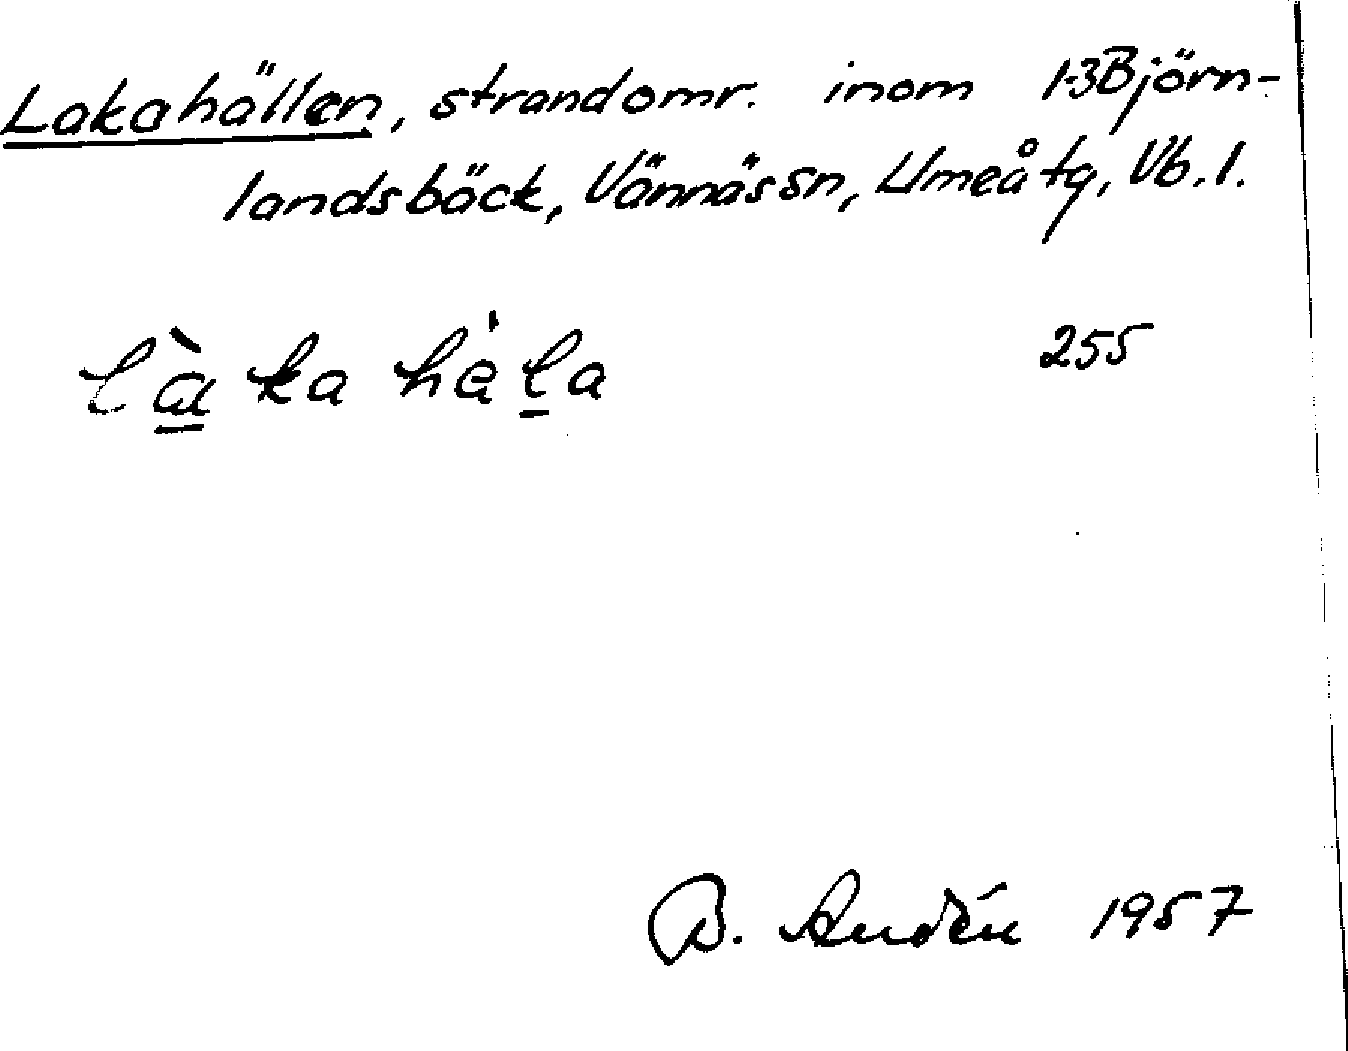 Lakahällen, strandomr. inom 1-3 Björn-
landsbäck, Vännäs sn, Umeå tg, Vb. l.
là̱ka hàḻa 255
B. Andén 1957